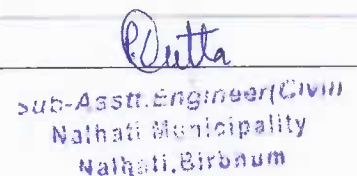 P. Dutta
Sub-Asstt. Engineer (Civil)
Nalhati Municipality
Nalhati, Birbhum